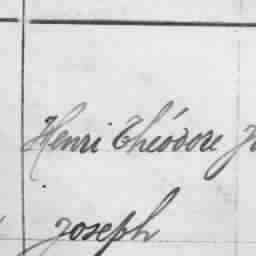 Henri Théodore
Joseph